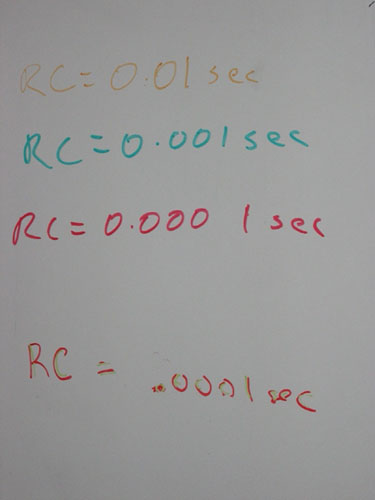 RC = 0.01 sec
RC = 0.001 sec
RC = 0.000 1 sec
RC = .0001 sec